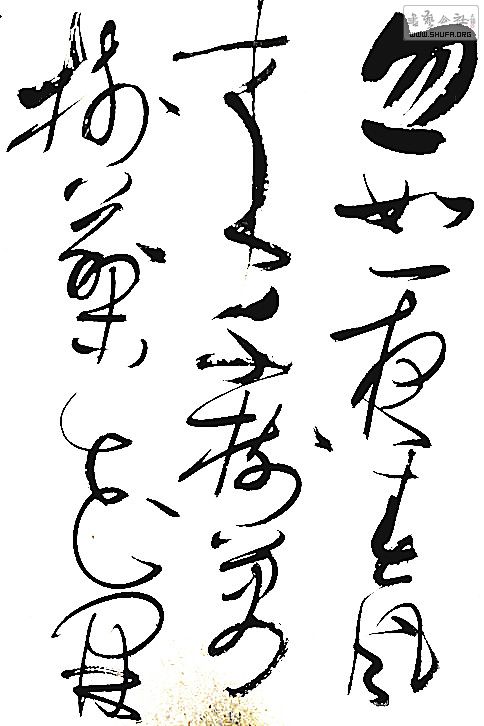 書藝公社
WWW.SHUFA.ORG
忽如一夜春風
来千樹萬
樹梨花開